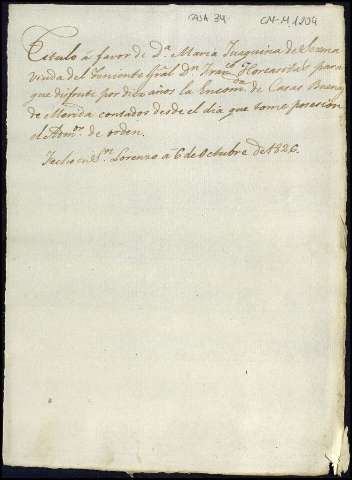 CAJA 34 CM-M 1804
Titulo á favor de D.ª Maria Juaquina de
viuda del Teniente Gral D.n Fran.co Horcasitas para
que disfrute por diez años la Encom.da de Casas Buenas
de Merida contados desde el dia que tome posesion
el Adm.or de orden.
Fecho en S.n Lorenzo a 6 de Octubre de 1826.